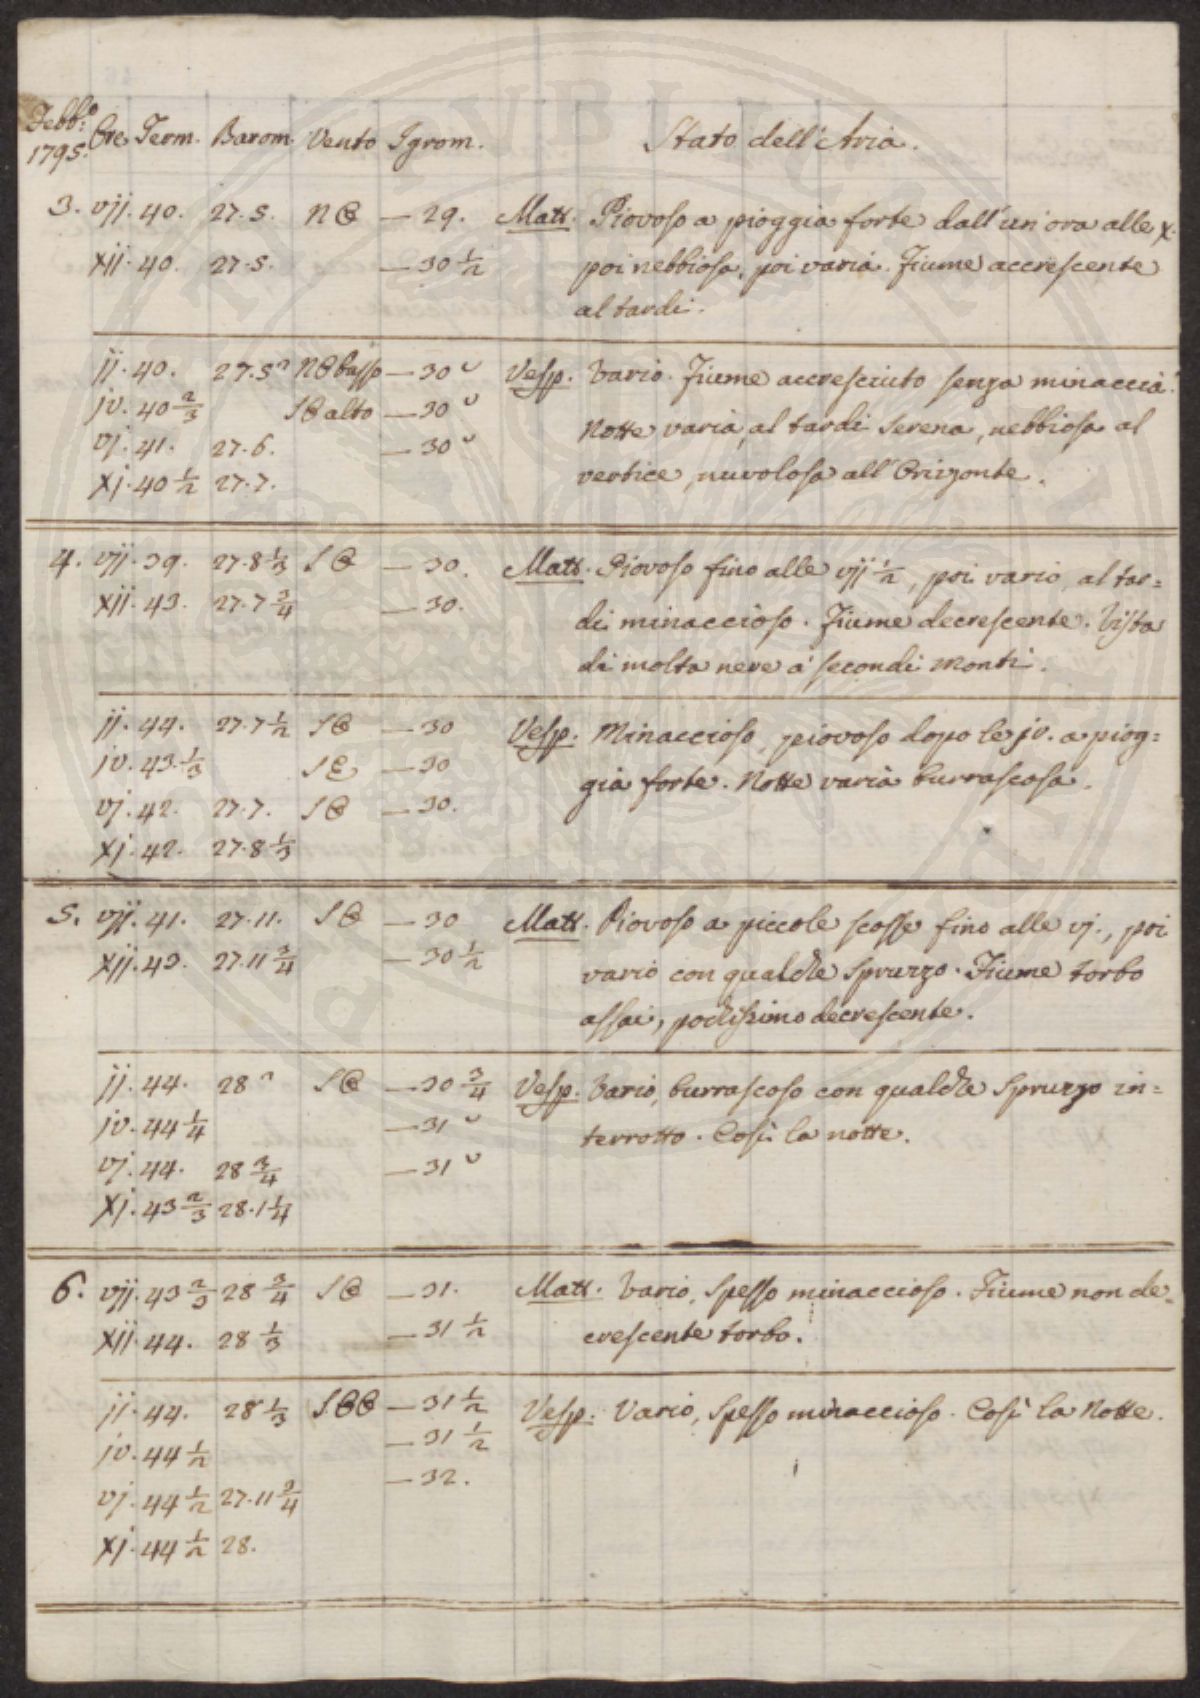 Febb:º 1795. Ore Term. Barom. Vento Igrom. Stato dell'Aria.
3. vij. 40. 27.5. NE — 29. Matt. Piovoso a pioggia forte dall'un'ora alle x.
xij. 40. 27.5. — 30 1/2 poi nebbiosa, poi varia. Fiume accrescente
al tardi.
ij. 40. 27.5 NE basso — 30 Vesp. Vario. Fiume accresciuto senza minaccia.
iv. 40 2/3 SE alto — 30
Notte varia, al tardi serena, nebbiosa al
vj. 41. 27.6. — 30
xj. 40 1/2 27.7. vertice, nuvolosa all'Orizonte.
4. vij. 39. 27.8 1/3 SE — 30. Matt. Piovoso fino alle vij 1/2, poi vario, al tar=
xij. 43. 27.7 3/4 — 30. di minaccioso. Fiume decrescente. Vista
di molta neve a' secondi monti.
ij. 44. 27.7 1/2 SE — 30 Vesp. Minaccioso, piovoso dopo le jv. a piog=
iv. 43 1/3 SE — 30 gia forte. Notte varia burrascosa.
vj. 42. 27.7. SE — 30.
xj. 42. 27.8 1/3
5. vij. 41. 27.11. SE — 30 Matt. Piovoso a piccole scosse fino alle vj., poi
xij. 43. 27.11 3/4 — 30 1/2 vario con qualche spruzzo. Fiume torbo
assai, pochissimo decrescente.
ij. 44. 28 SE — 30 3/4 Vesp. Vario, burrascoso con qualche spruzzo in=
iv. 44 1/4 — 31 terrotto. Così la notte.
vj. 44. 28 3/4 — 31
xj. 43 2/3 28.1 1/4
6. vij. 43 2/3 28 3/4 SE — 31. Matt. Vario, spesso minaccioso. Fiume non de=
xij. 44. 28 1/3 — 31 1/2 crescente torbo.
ij. 44. 28 1/3 SEE — 31 1/2 Vesp. Vario, spesso minaccioso. Così la Notte.
iv. 44 1/2 — 31 1/2
— 32.
vj. 44 1/2 27.11 3/4
xj. 44 1/2 28.